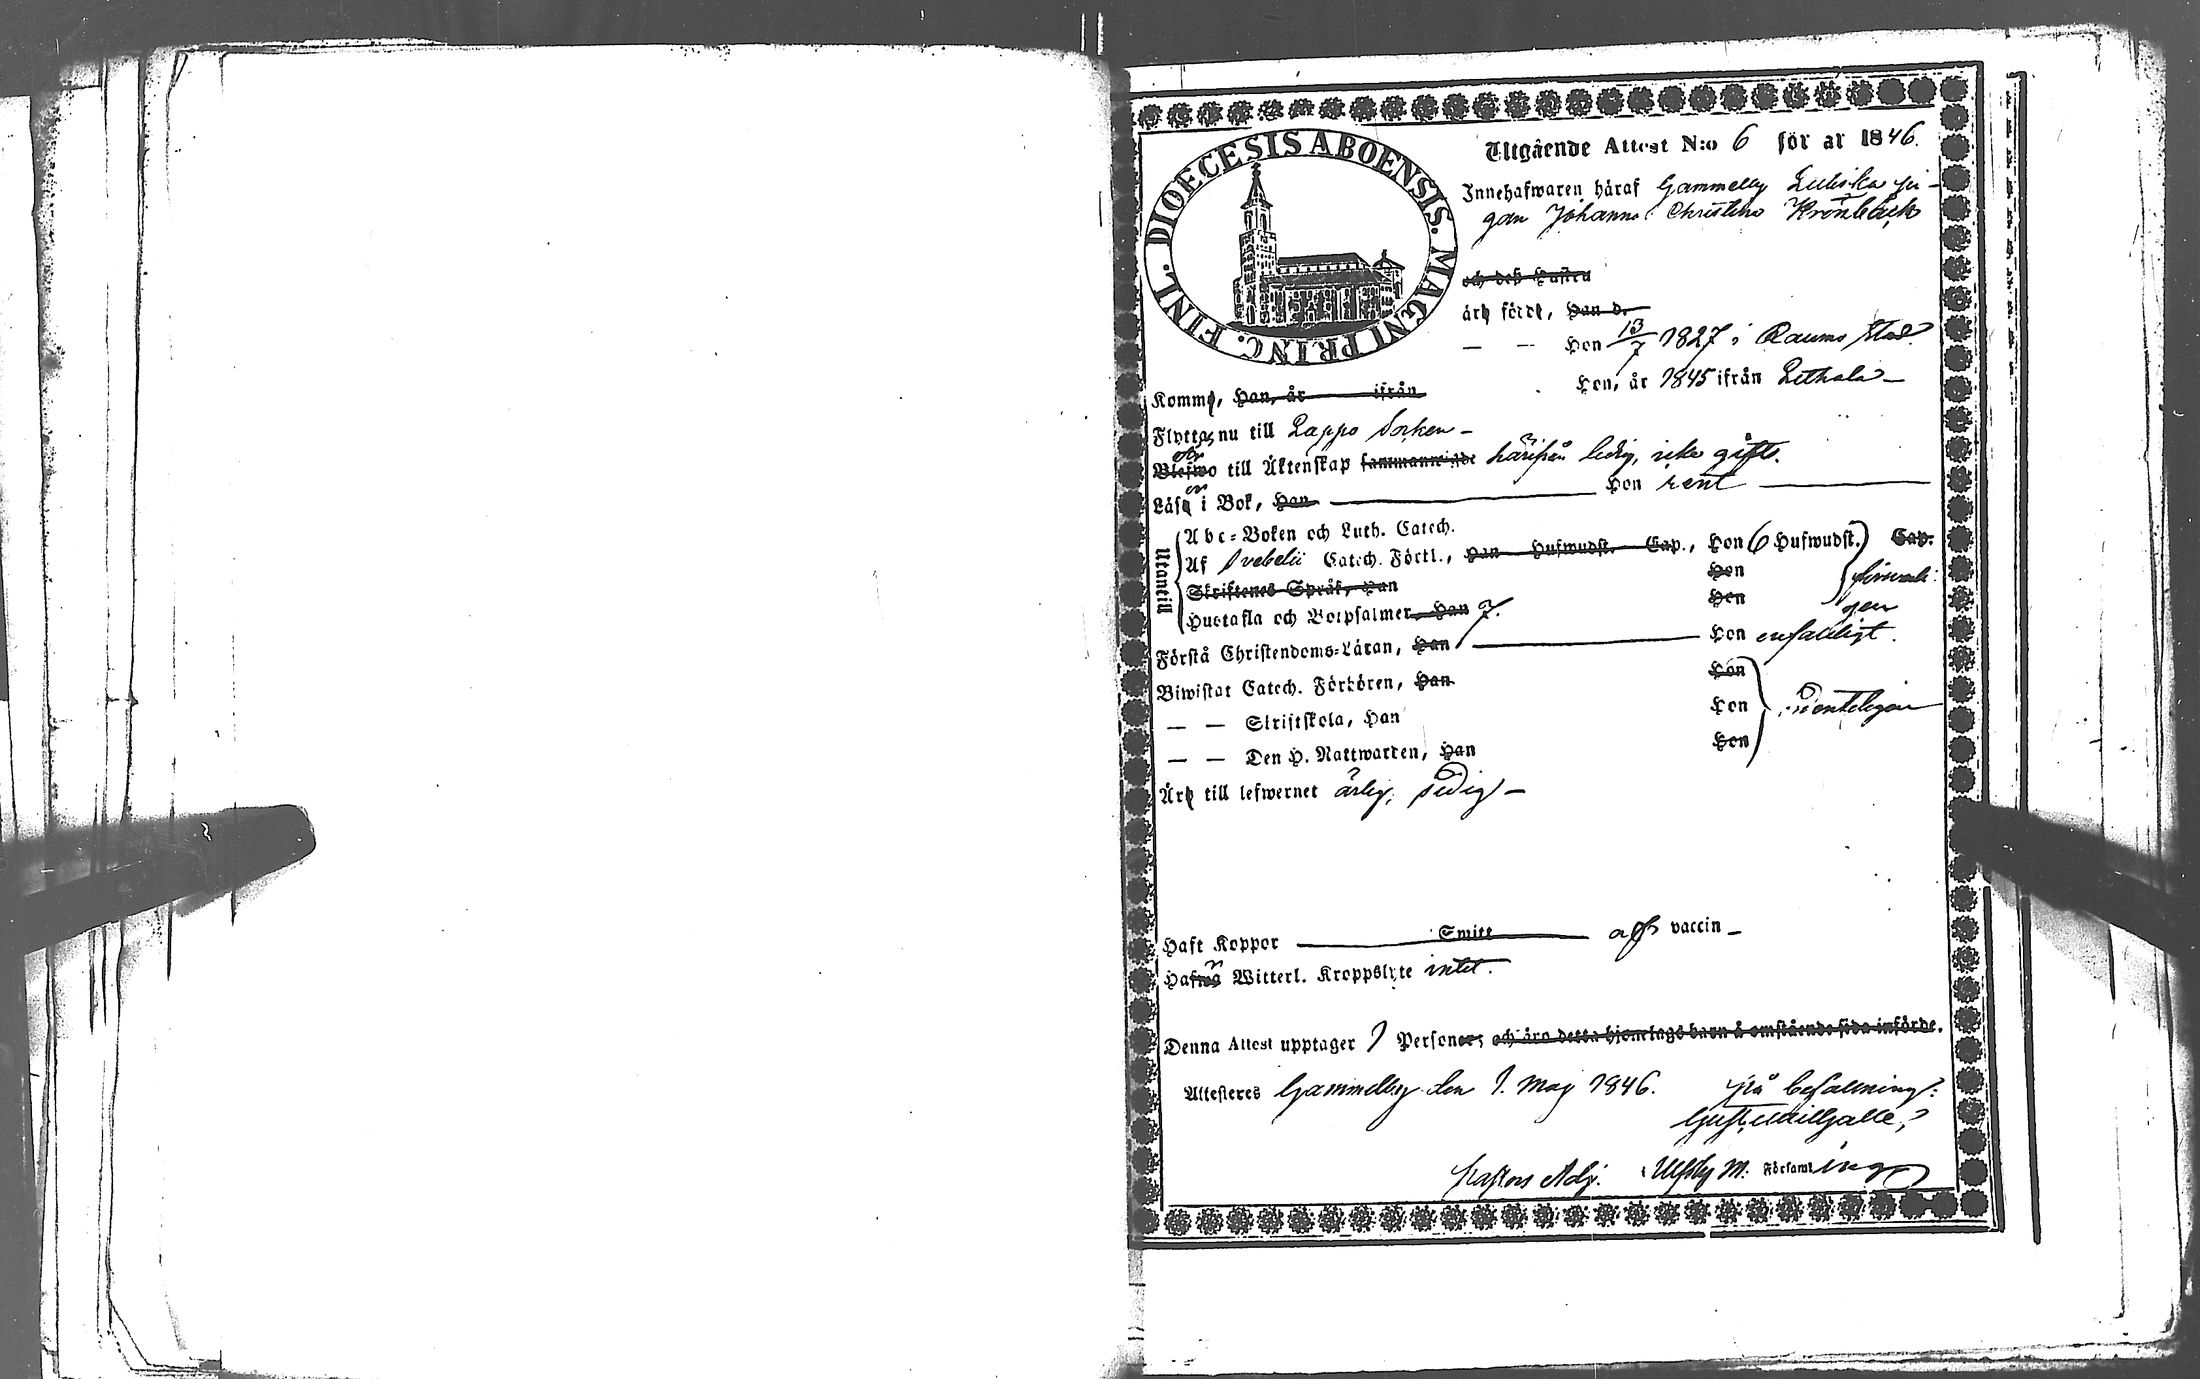 DIOECESIS ABOENSIS. MAGNI PRINC. FINL.
Utgående Attest N:o 6 för år 1846.
Innehafwaren häraf Gammelby pi-
gan Johanna Christina Kronbäck
och deß Hustru
äro född, Han d.
— — Hon 13/7 1827 i Raumo stad
Kommo, Han, år ifrån Hon, år 1845 ifrån Lethala —
Flyttar nu till Lappo Socken —
Blefwo till Äktenskap sammanwigde härifrån ledig, icke gifte.
Läser i Bok, Han Hon rent
Utantill
Abc-Boken och Luth. Catech.
Af Svebelii Catech. Förkl., Han Hufwudst. Cap., Hon 6 Hufwudst. Cap.
Skriftenes Språk, Han Hon
Hustafla och Botpsalmer, Han 7. Hon
Förstå Christendoms-Läran, Han Hon enfaldigt.
Biwistat Catech. Förhören, Han Hon
— — Skriftskola, Han Hon
— — Den H. Nattwarden, Han Hon
Äro till lefwernet ärlig, sedig —
Haft Koppor Smitt af vaccin —
Hafwa Witterl. Kroppslyte intet.
Denna Attest upptager 1 Personer; och äro detta hjonelags barn å omstående sida införde.
Attesteres Gammelby den 1. Maj 1846. på befallning:
Pastors Adj. i Ulfsby M. Församling